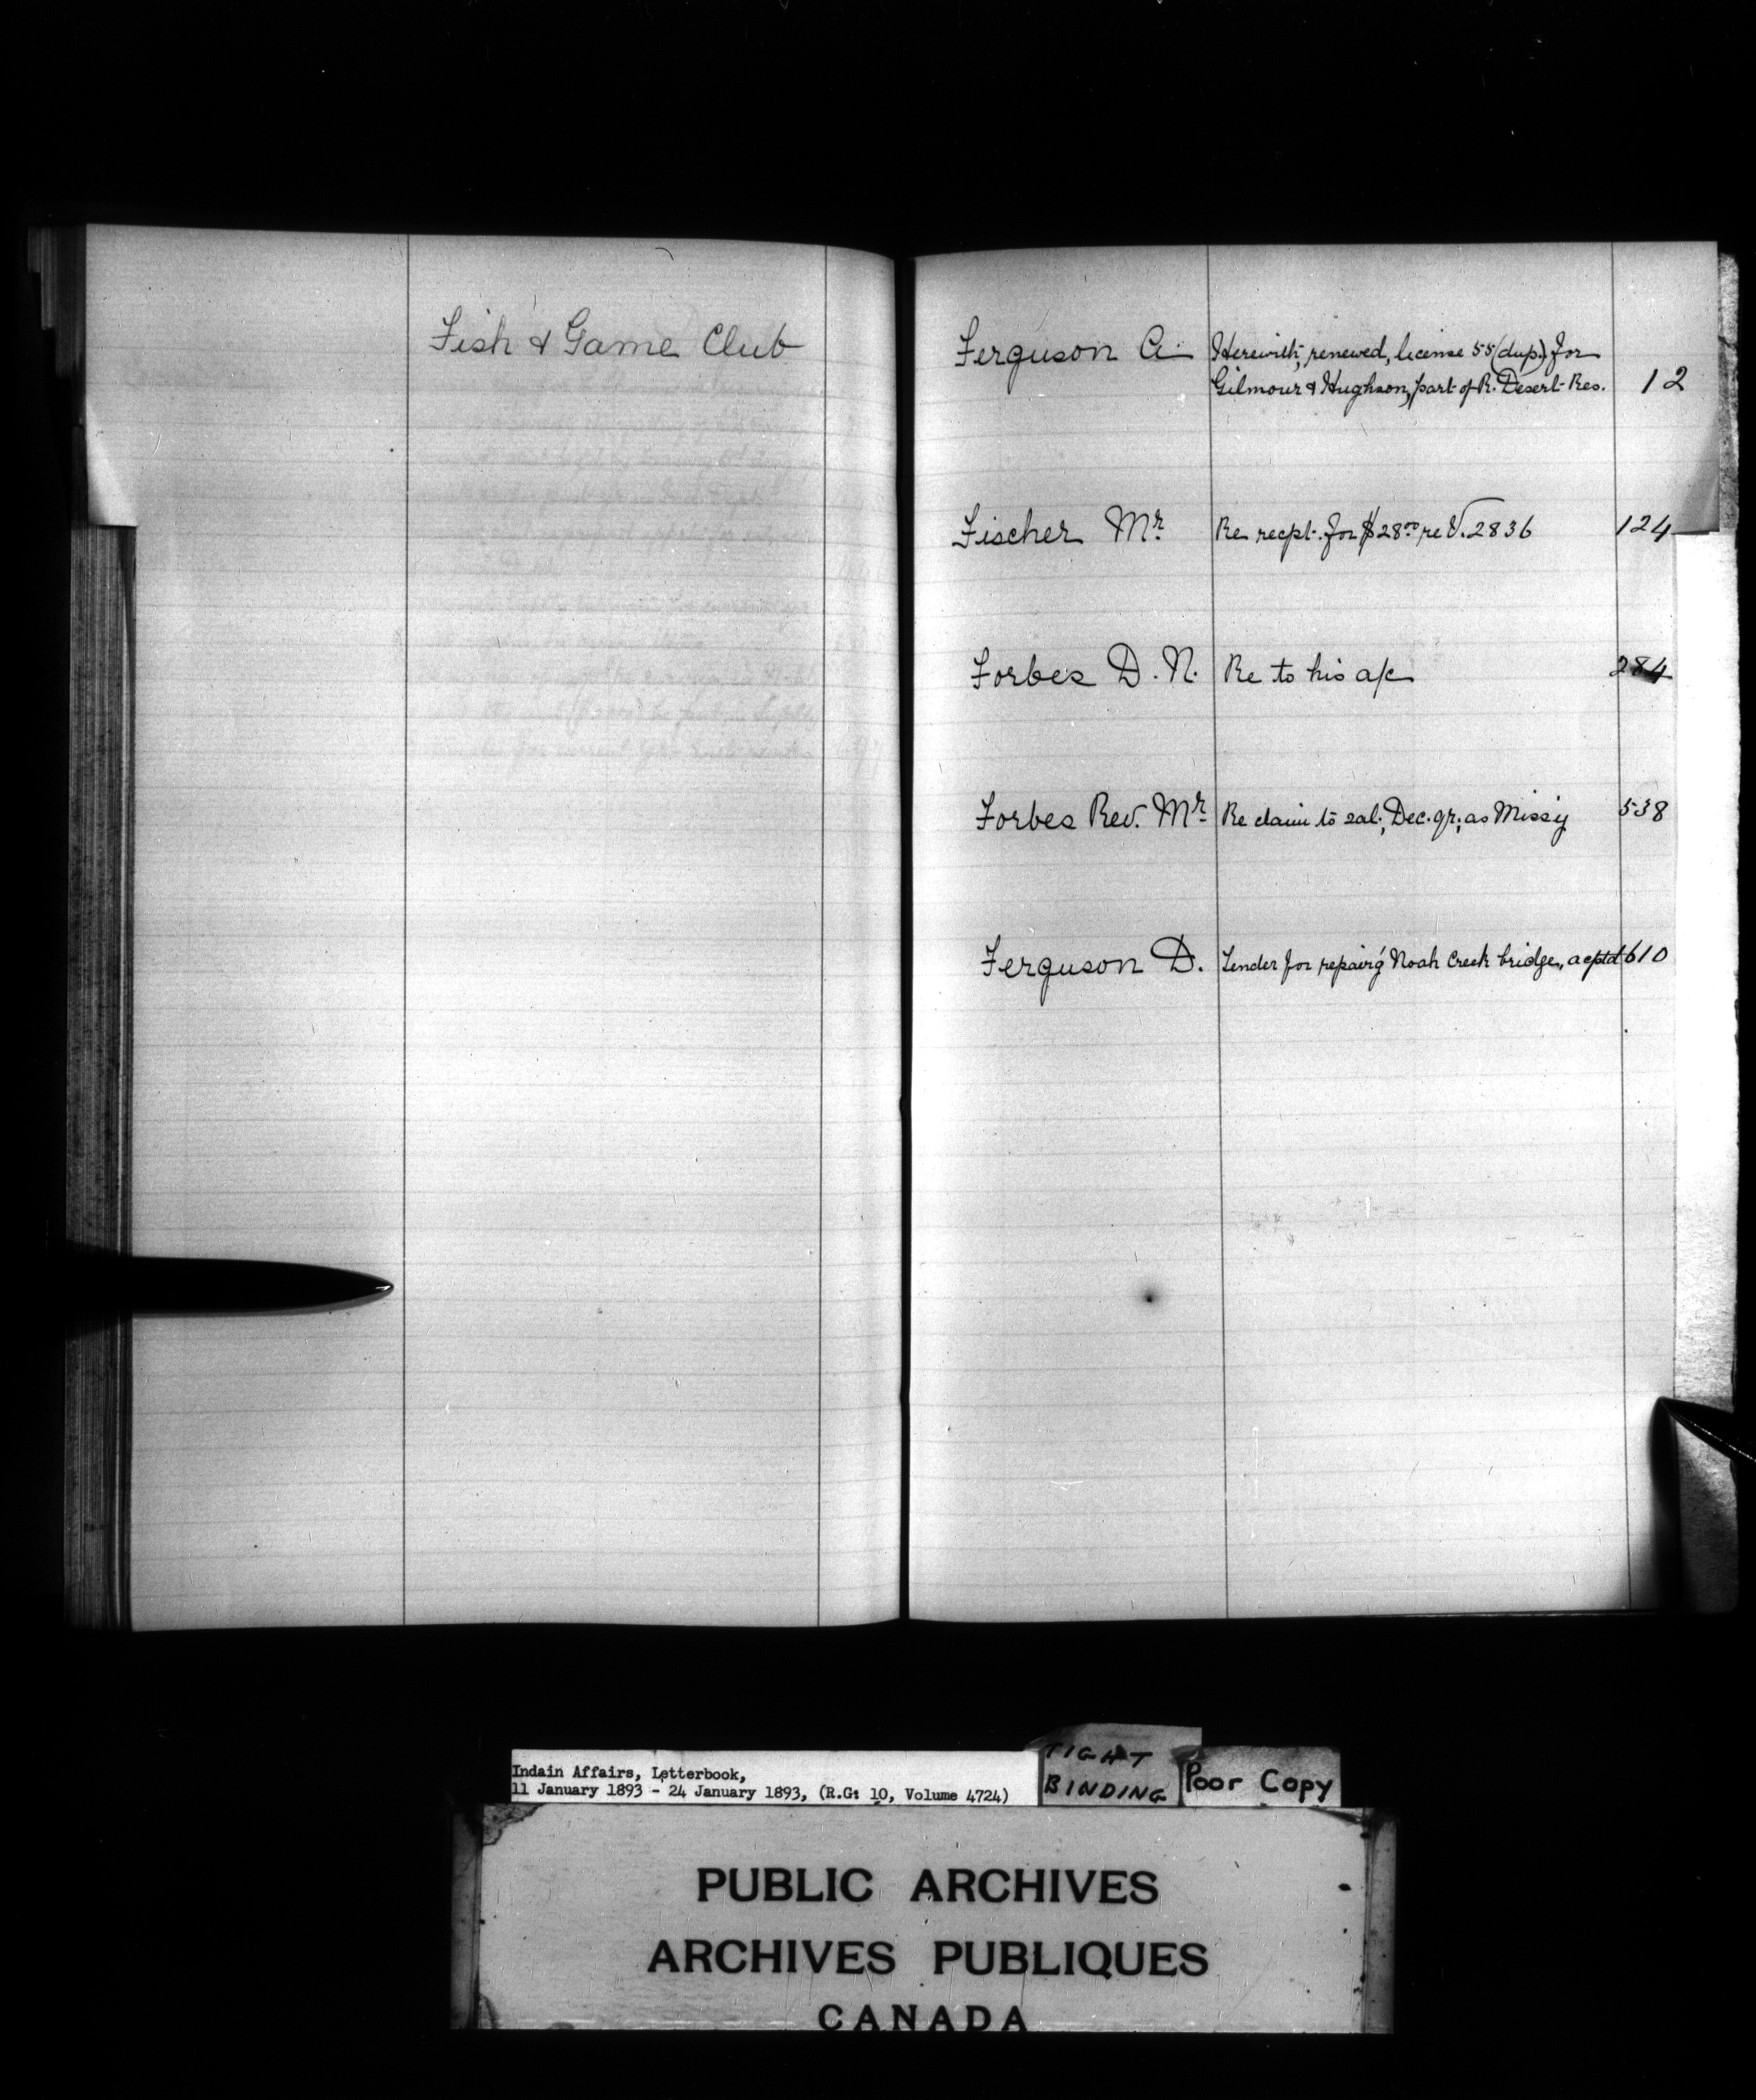 Fish & Game Club
Ferguson A. Herewith, renewed, license 55 (dup.) for
Gilmour & Hughson, part of R. Desert Res. 12
Fischer Mr. Re recpt. for $28.00 re V. 2836 124
Forbes D. N. Re to his a/c 284
Forbes Rev. Mr. Re claim to sal., Dec. qr., as Missy 538
Ferguson D. Tender for repair'g Noah Creek bridge, acptd 610
Indain Affairs, Letterbook,
11 January 1893 - 24 January 1893, (R.G: 10, Volume 4724)
TIGHT
BINDING
Poor Copy
PUBLIC ARCHIVES
ARCHIVES PUBLIQUES
CANADA